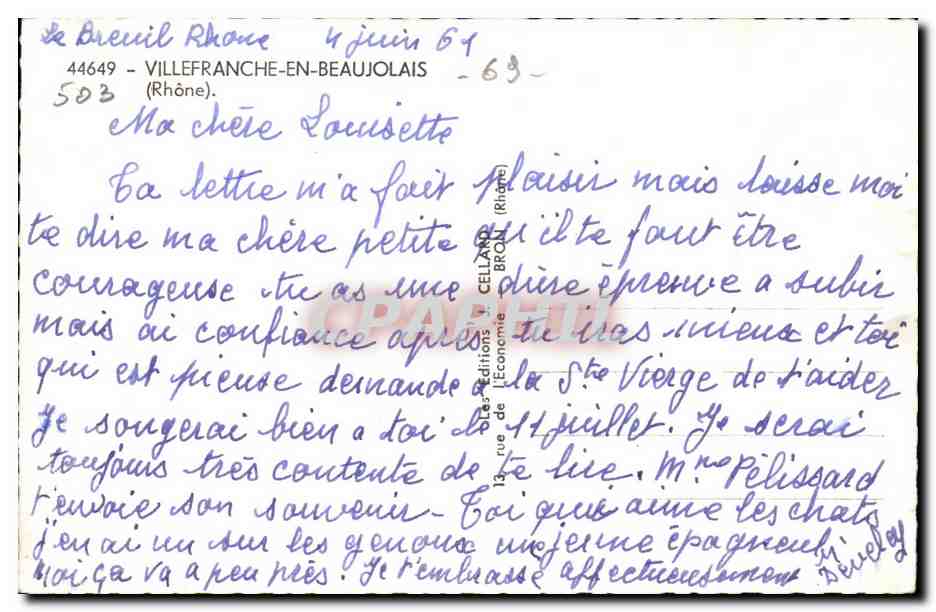 Le Breuil Rhone 4 juin 61
44649 - VILLEFRANCHE-EN-BEAUJOLAIS
- 69 -
503 (Rhône).
Ma chère Louisette
Ta lettre m'a fait plaisir mais laisse moi
te dire ma chère petite qu'il te faut être
courageuse tu as une dure épreuve a subir
mais ai confiance après tu iras mieux et toi
qui est pieuse demande a la Ste Vierge de t'aider
Je songerai bien a toi le 11 juillet. Je serai
toujours très contente de te lire. Mme Pélissard
t'envoie son souvenir - Toi qui aime les chats
j'en ai un sur les genoux une jeune épagneul
Moi ça va a peu près. Je t'embrasse affectueusement
Les Editions J. CELLARD
13, rue de l'Economie BRON (Rhône)
CPAPHIL